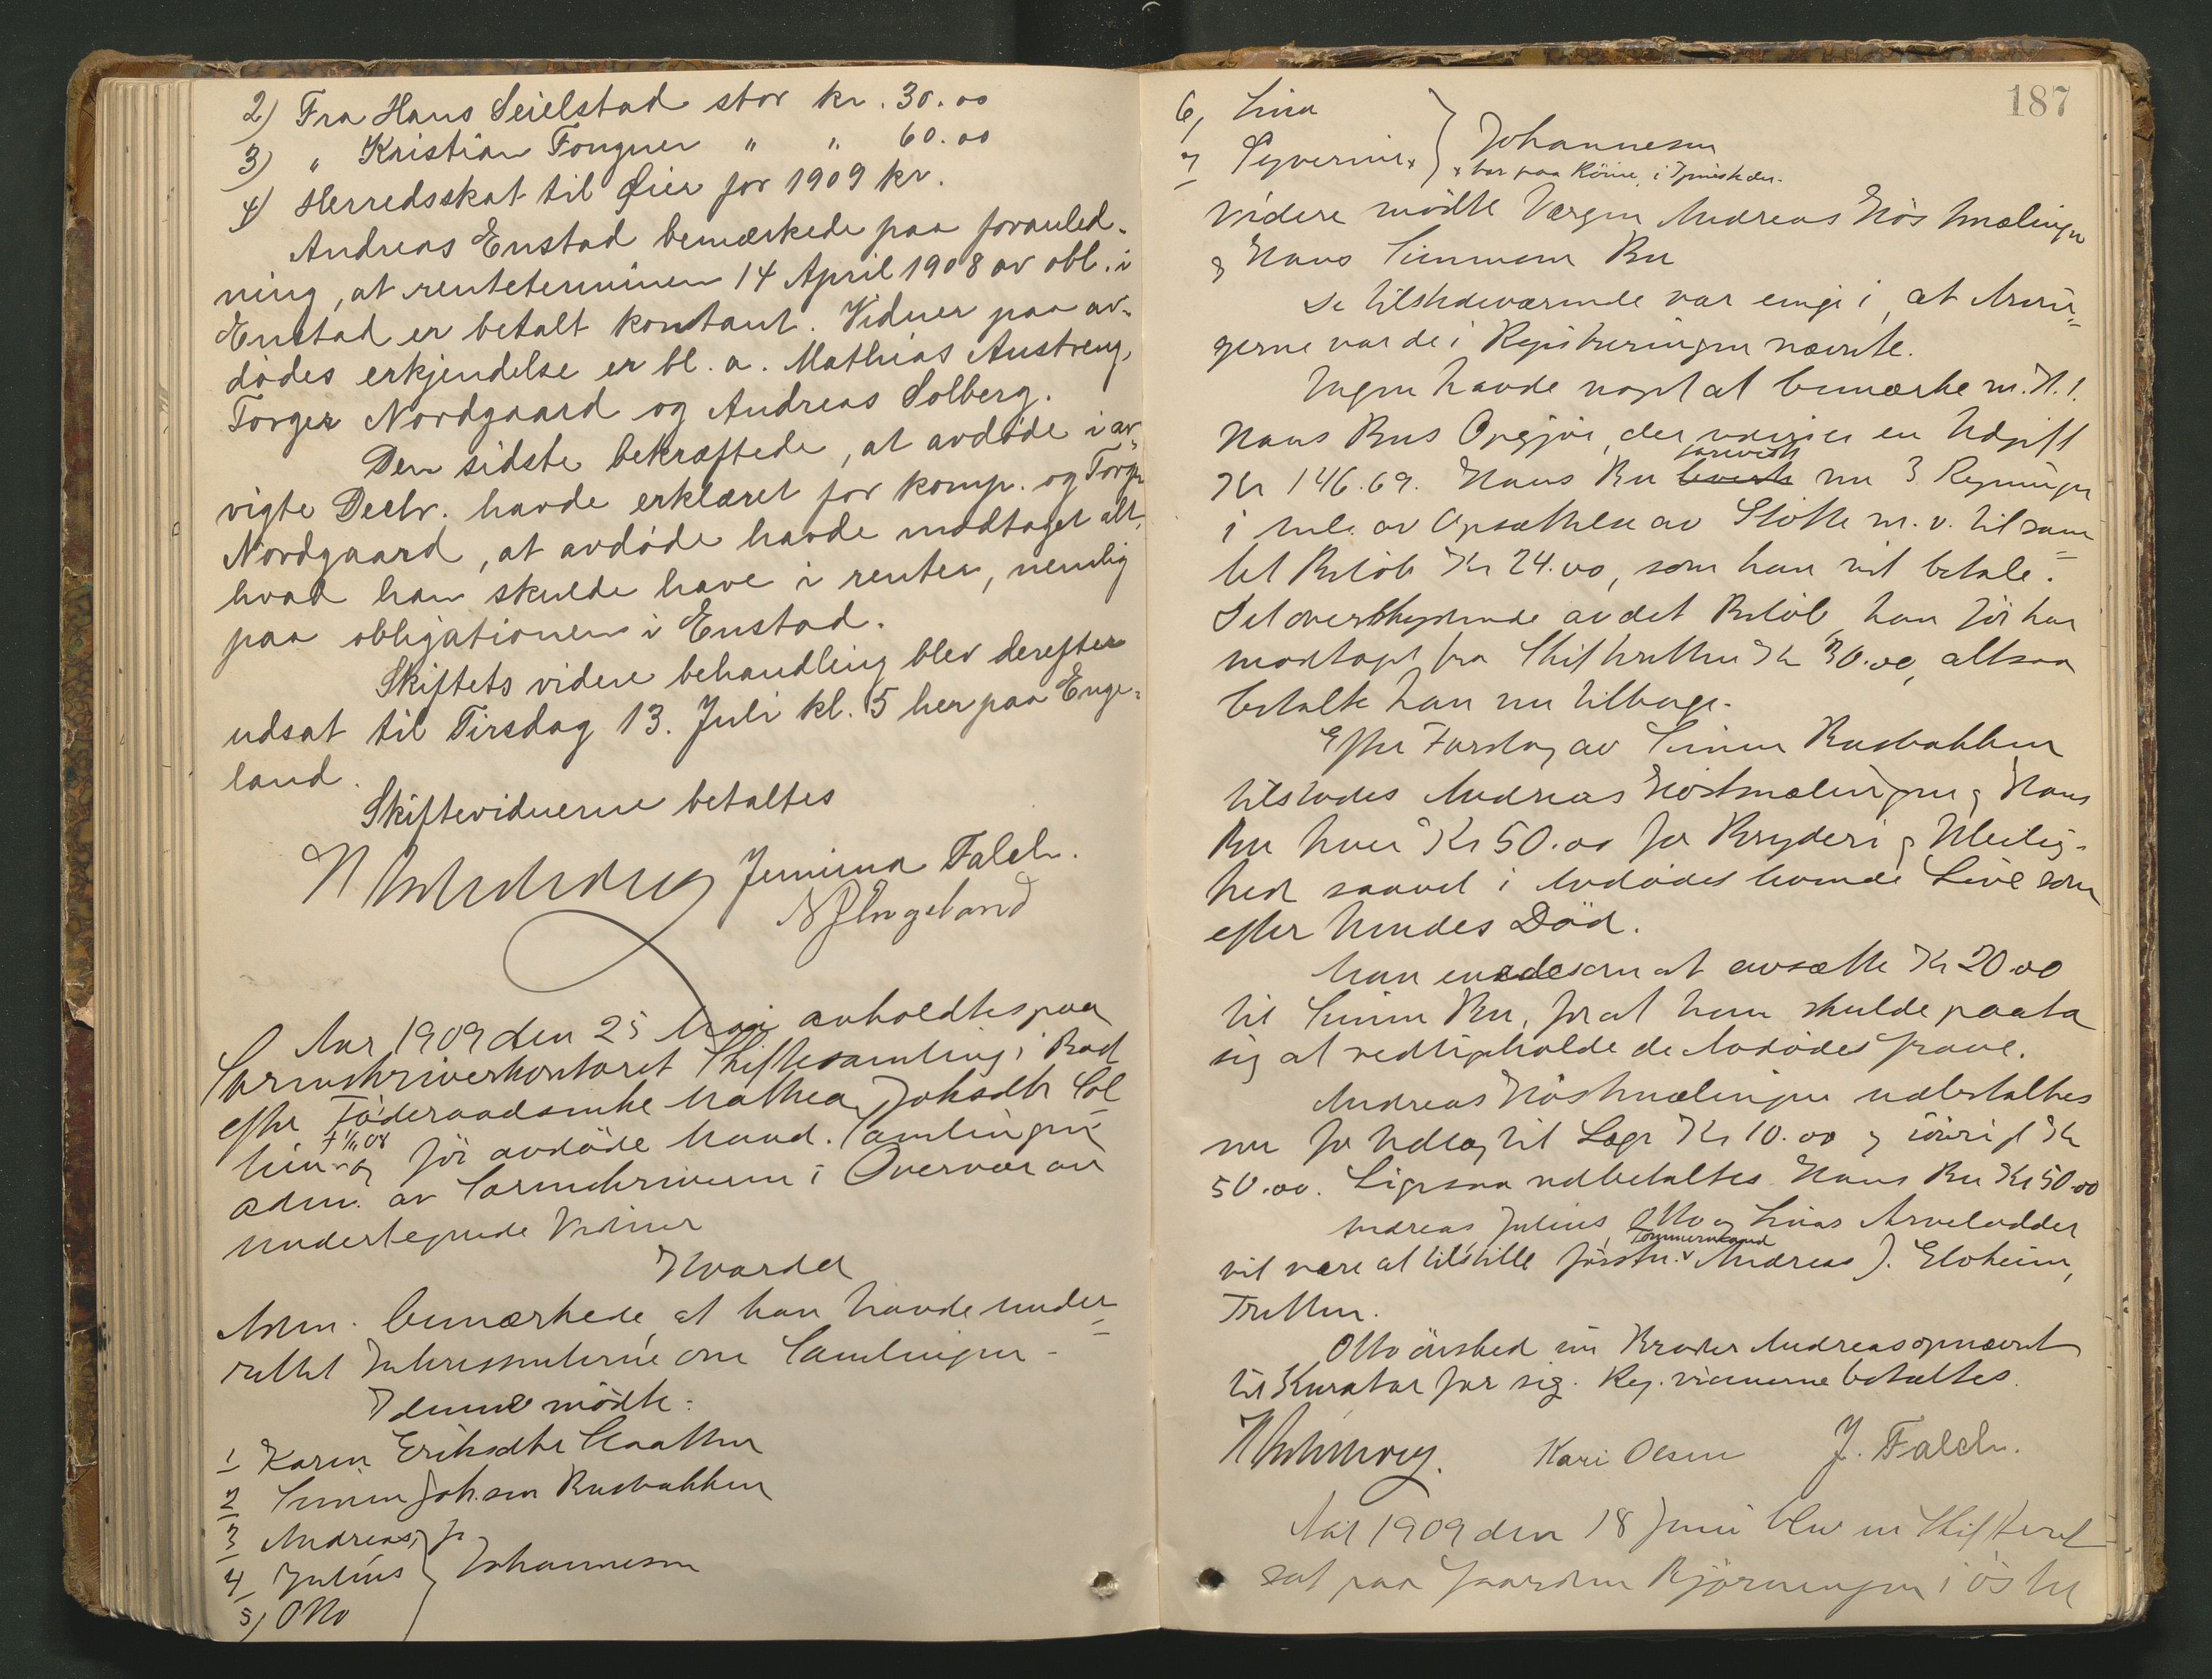 2) Fra Hans Seielstad stor kr. 30.00
3) " Kristian Fougner " " 60.00
4) Herredsskat til Øier for 1909 kr.
Andreas Enstad bemærkede paa foranled-
ning, at renteterminen 14 April 1908 av obl. i
Enstad er betalt kontant. Vidner paa av-
dødes erkjendelse er bl. a. Mathias Austreng,
Torger Nordgaard og Andreas Solberg.
Den sidste bekræftede, at avdøde i av-
vigte Decbr. havde erklæret for komp. og Torger
Nordgaard, at avdøde havde modtaget alt,
hvad han skulde have i renter, nemlig
paa obligationen i Enstad.
Skiftets videre behandling blev derefter
udsat til Tirsdag 13. Juli kl. 5 her paa Enge-
land.
Skiftevidnerne betaltes
Jemima Falch.
N J Engeland
Aar 1909 den 25 Mai avholdtes paa
Sorenskriverkontoret Skiftesamling i Bod
efter Føderaadsenke Mathea Johsdtr Sol
† 1/11 08
og før avdøde Mand. Samlingen
adm. av Sorenskriveren i Overvær av
undertegnede Vidner
Hvorda
Adm. bemærkede, at han havde under-
rettet Interessenterne om Samlingen -
I denne mødte:
1 Karen Eriksdtr Kraabben
2 Simen Johsen Rusbakken
3 Andreas,
4 Julius } Johannesen
5) Otto
187
6, Lina
7 Syverine x } Johannesen
x bor paa
Videre mødte Værgen Andreas Høistmælingen
og Hans Simensen Bu
De tilstedeværende var enige i, at Arvin-
gerne var de i Registreringen nævnte.
Ingen havde noget at bemærke m. H. t.
Hans Bus Opgjør, der udviser en Udgift
foreviste
Kr 146.69. Hans Bu nu 3 Regninger
i Anl. av Opsættelse av Støtte m. v. til sam
let Beløb Kr 24.00, som han vil betale.
Det overskydende av det Beløb, han før har
modtaget fra Skifteretten Kr 30.00, altsaa
betalte han nu tilbage.
Efter Forslag av Simen Rusbakken
tilstodes Andreas Høistmælingen og Hans
Bu hver Kr 50.00 for Bryderi og Uleilig-
hed saavel i Avdødes levende Live som
efter hendes Død.
Man enedes om at avsætte Kr 20.00
til Simen Bu, for at han skulde paata
sig at vedligeholde de Avdødes Grave.
Andreas Høistmælingen udbetaltes
nu for Udlæg til Læge Kr 10.00 og iøvrigt Kr
50.00. Ligesaa udbetaltes Hans Bu Kr 50.00
Andreas, Julius, Otto og Linas Arvelodder
Tømmermand
vil være at tilstille førstn. v Andreas J. Eloheim,
Tretten.
Otto ønsked sin Broder Andreas opnævnt
til Kurator for sig. Reg. vidnerne betaltes.
Kari Olsen J. Falch.
Aar 1909 den 18 Juni blev en Skifteret
sat paa Gaarden Bjørningen i Østre